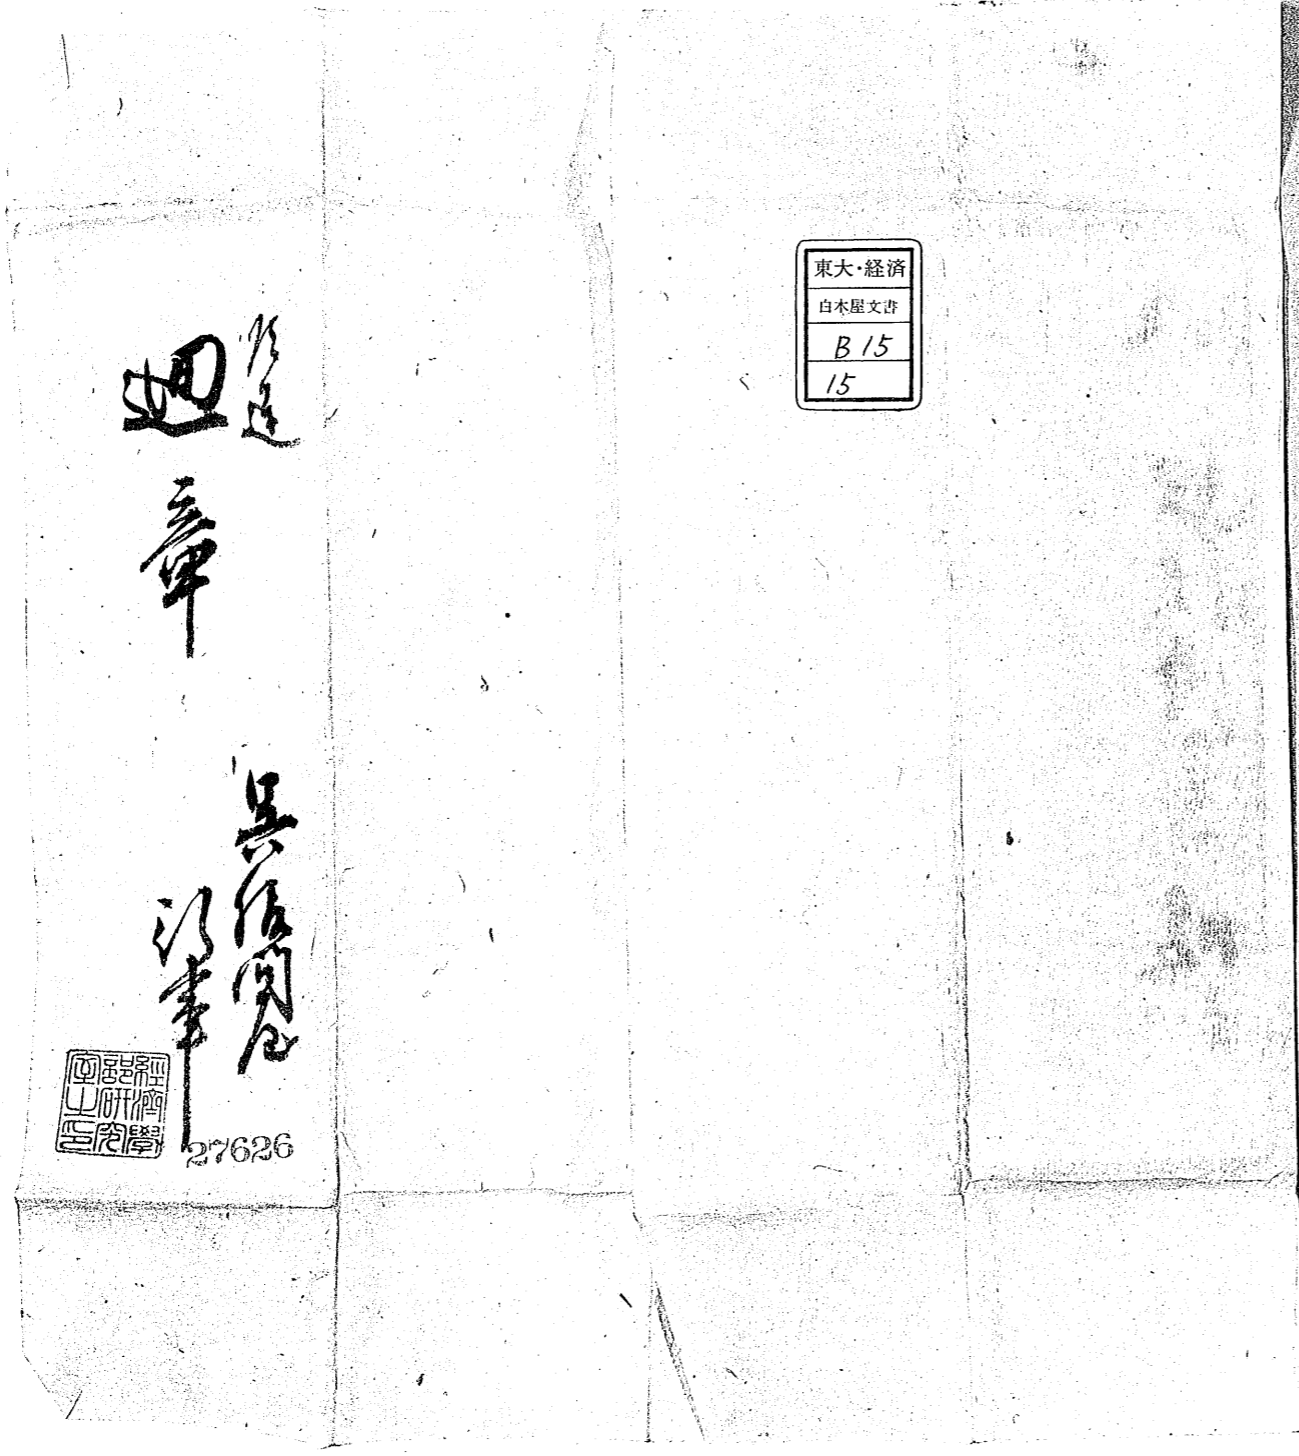 東大・経済
白木屋文書
B 15
15
順達
廻章
呉服問屋
行事
經濟學
部研究
室之印
27626